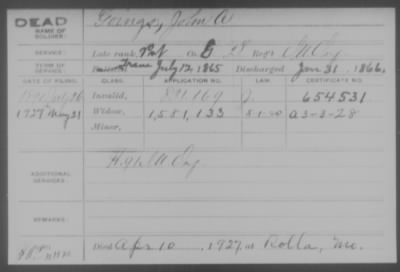 DEAD
NAME OF SOLDIER: Goings, John W
SERVICE: Late rank, Pvt Co. E 28 Reg't
TERM OF SERVICE: Trans July 12, 1865 Discharged Jan 31, 1866,
DATE OF FILING. CLASS. APPLICATION NO. LAW. CERTIFICATE NO.
Invalid, J. 654531
1927 May 31 Widow, 1,581,133 5-1-20 A-3-3-28
Minor,
ADDITIONAL SERVICES:
REMARKS:
Died Apr 10, 1927, at Rolla, Mo.